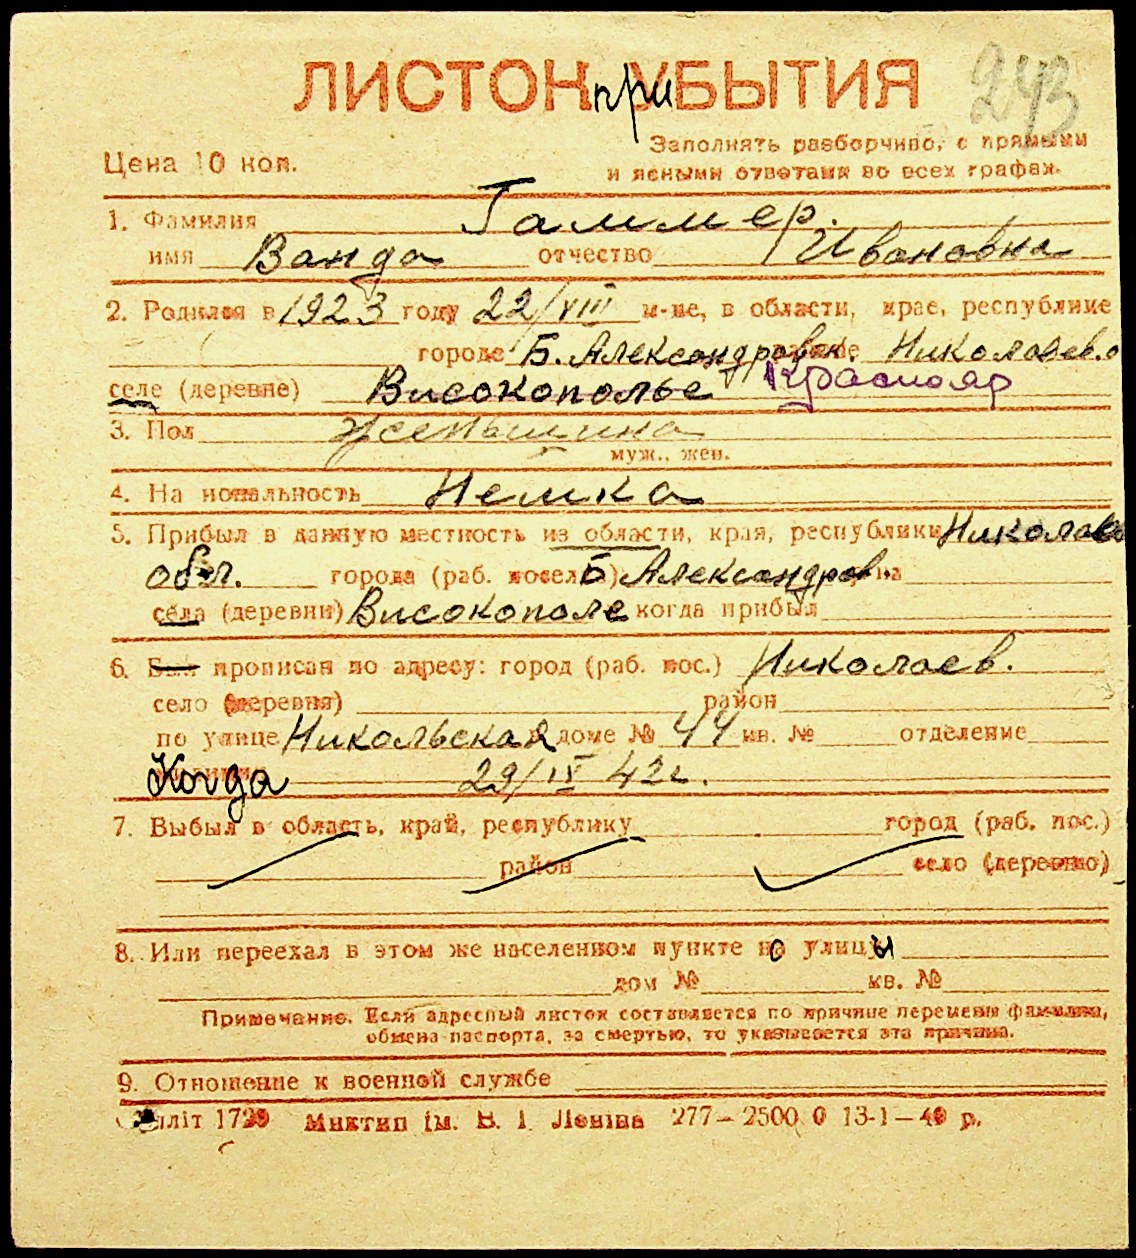 ЛИСТОК при УБЫТИЯ
243
Цена 10 коп.
Заполнять разборчиво, с прямыми
и ясными ответами во всех графах.
1. Фамилия Гаммер.
имя Ванда отчество Ивановна
2. Родился в 1923 году 22/VIII м-це, в области, крае, республике
городе Б. Александровск. районе Николаев. о
селе (деревне) Високополье Краснояр
3. Пол женьшина
муж., жен.
4. На иональность Немка
5. Прибыл в данную местность из области, края, республики Николаев
обл. города (раб. посел Б Александров. на
села (деревни) Високополе когда прибыл
6. Был прописан по адресу: город (раб. пос.) Николаев.
село (деревня) район
по улице Никольская в доме № 44 кв. № отделение
Когда 29/IV 42г.
7. Выбыл в область, край, республику город (раб. пос.)
район село (деревню)
8. Или переехал в этом же населенном пункте со улицы
дом № кв. №
Примечание. Если адресный листок составляется по причине перемены фамилии,
обмена паспорта, за смертью, то указывается эта причина.
9. Отношение к военной службе
Миктип ім. В. І. Леніна 277—2500 0 13-1—40 р.